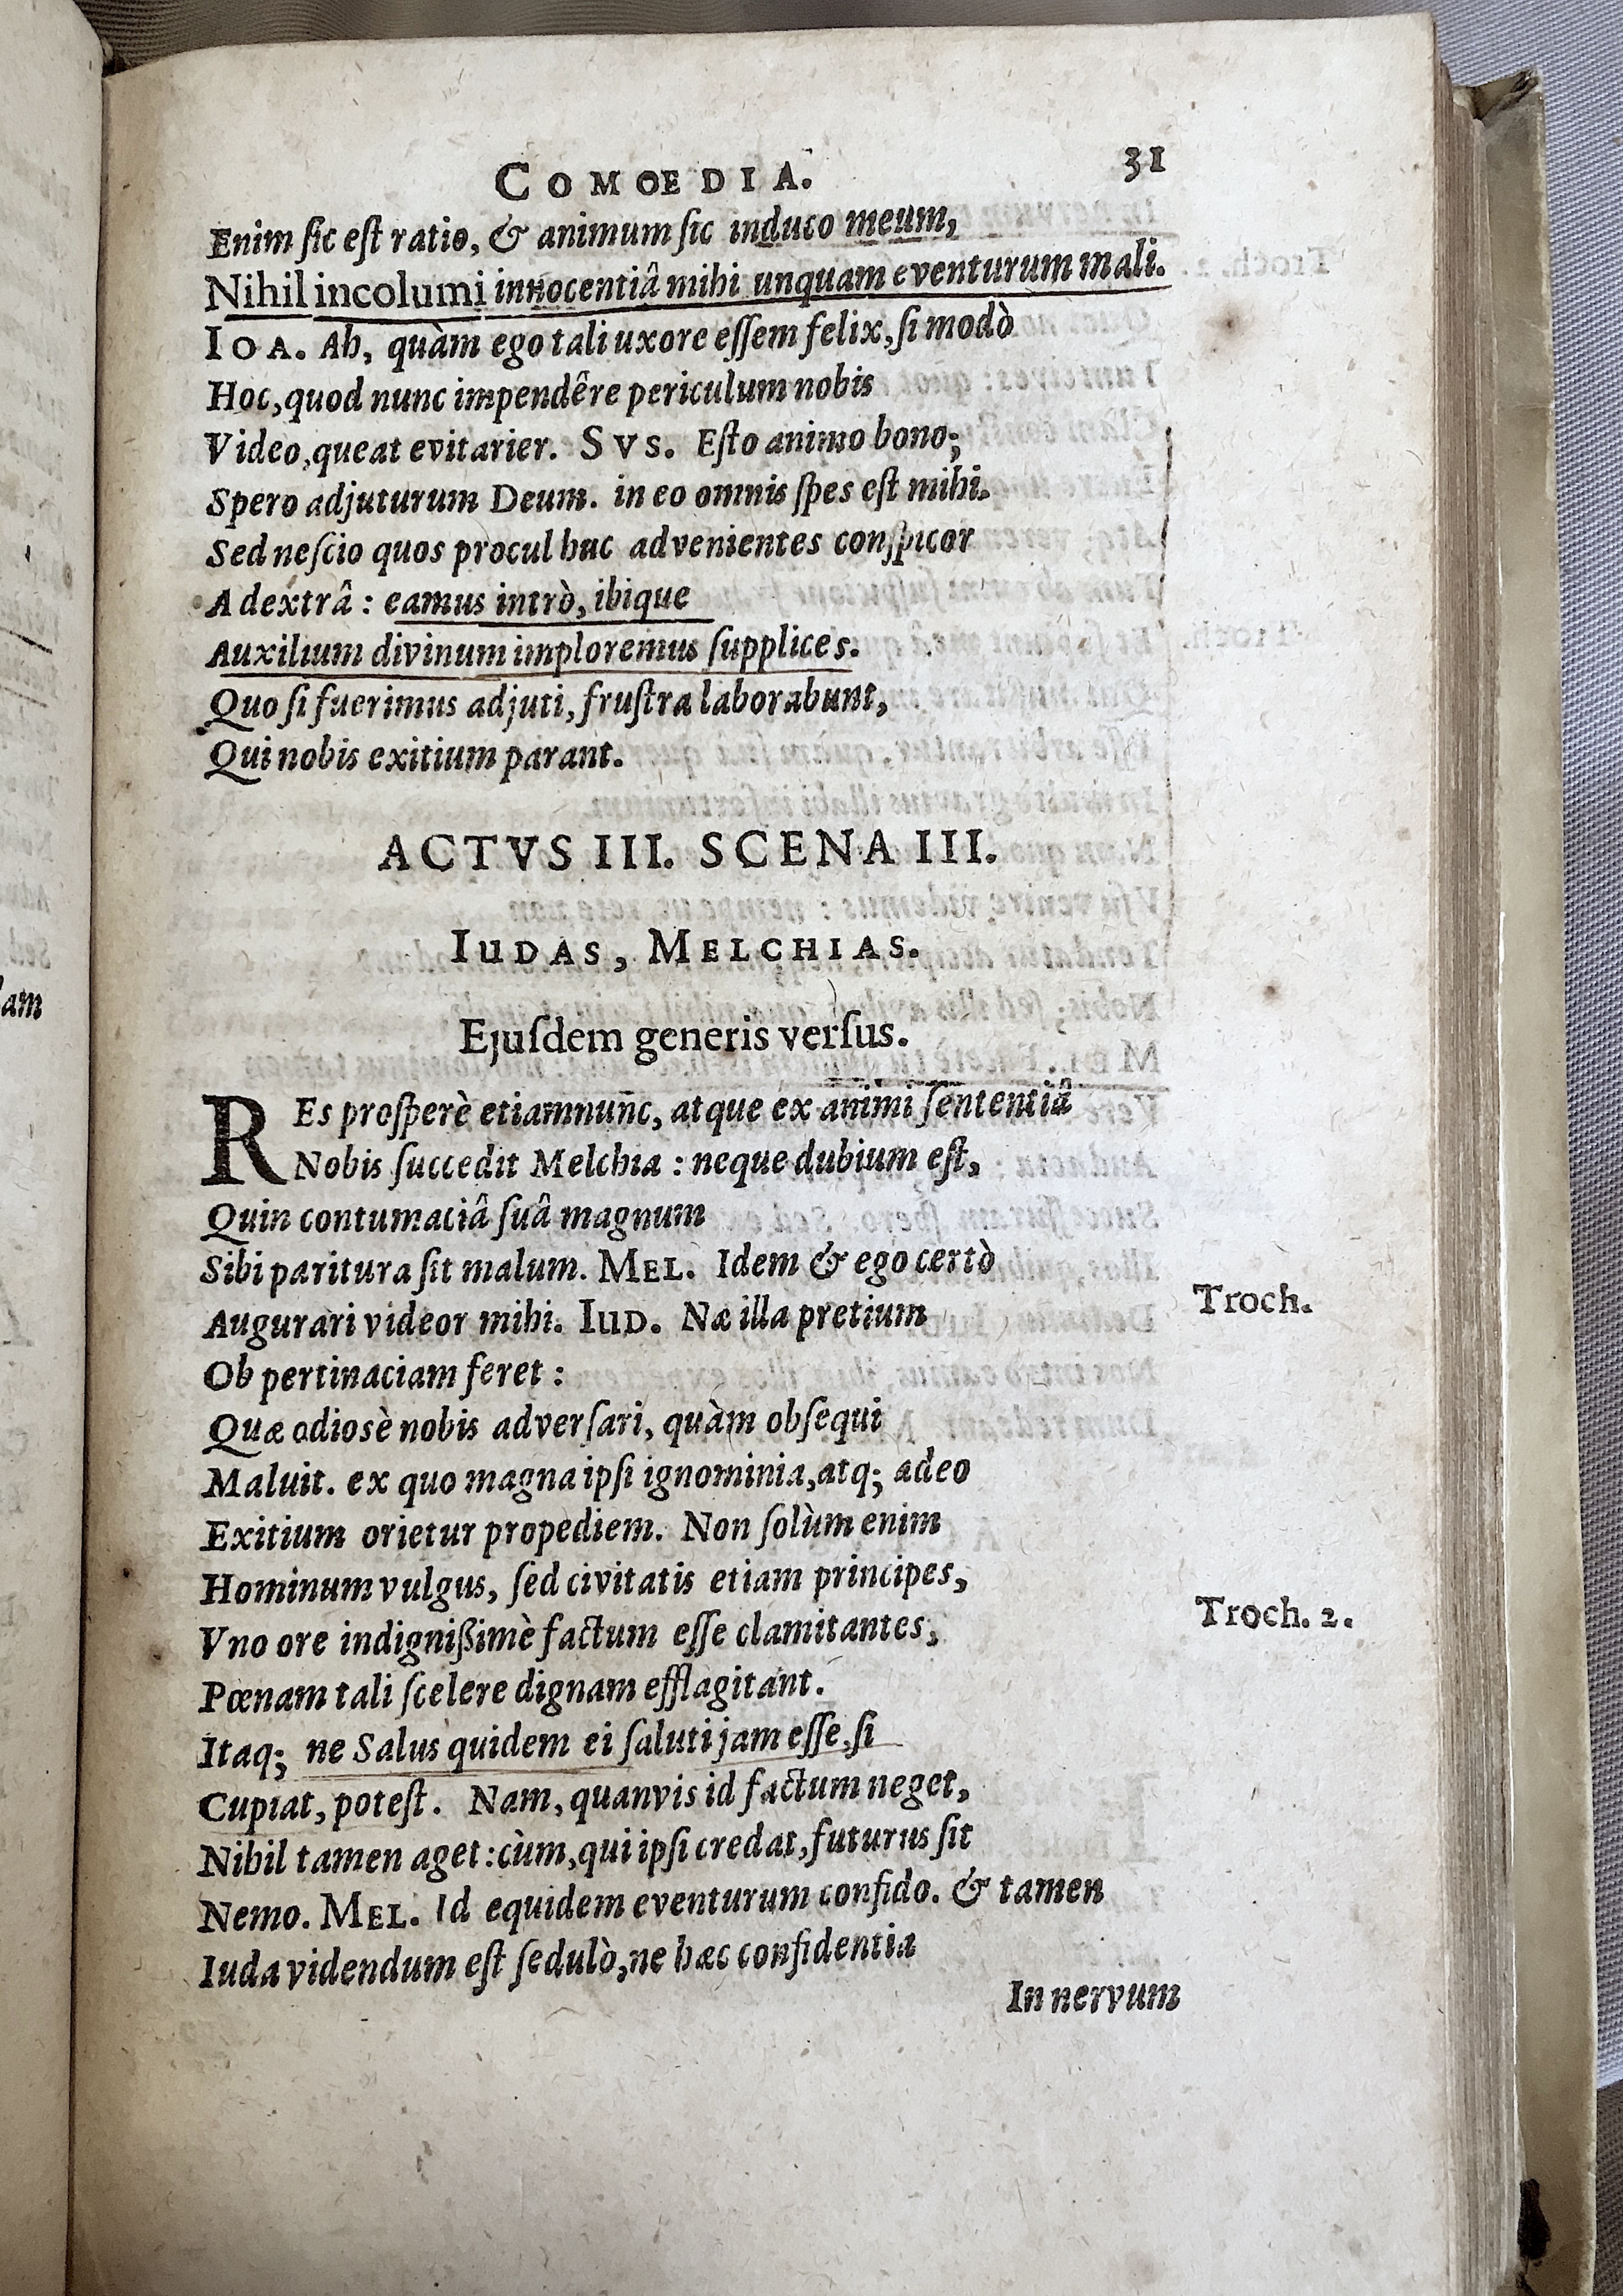 COMOEDIA. 31
Enim ſic eſt ratio, & animum ſic induco meum,
Nihil incolumi innocentiâ mihi unquam eventurum mali.
IOA. Ah, quàm ego tali uxore eſſem felix, ſi modò
Hoc, quod nunc impendêre periculum nobis
Video, queat evitarier. SVS. Eſto animo bono;
Spero adjuturum Deum. in eo omnis ſpes eſt mihi.
Sed neſcio quos procul huc advenientes conſpicor
A dextrâ: eamus intrò, ibique
Auxilium divinum imploremus ſupplices.
Quo ſi fuerimus adjuti, fruſtra laborabunt,
Qui nobis exitium parant.
ACTVS III. SCENA III.
IUDAS, MELCHIAS.
Ejuſdem generis verſus.
REs proſperè etiamnunc, atque ex animi ſententiâ
Nobis ſuccedit Melchia: neque dubium eſt,
Quin contumaciâ ſuâ magnum
Sibi paritura ſit malum. MEL. Idem & ego certò
Augurari videor mihi. IUD. Næ illa pretium Troch.
Ob pertinaciam feret:
Quæ odiosè nobis adverſari, quàm obſequi
Maluit. ex quo magna ipſi ignominia, atq; adeo
Exitium orietur propediem. Non ſolùm enim
Hominum vulgus, ſed civitatis etiam principes,
Vno ore indignißimè factum eſſe clamitantes, Troch. 2.
Pœnam tali ſcelere dignam efflagitant.
Itaq; ne Salus quidem ei ſaluti jam eſſe, ſi
Cupiat, poteſt. Nam, quanvis id factum neget,
Nihil tamen aget: cùm, qui ipſi credat, futurus ſit
Nemo. MEL. Id equidem eventurum confido. & tamen
Iuda videndum eſt ſedulò, ne hæc confidentia
In nervum
lam